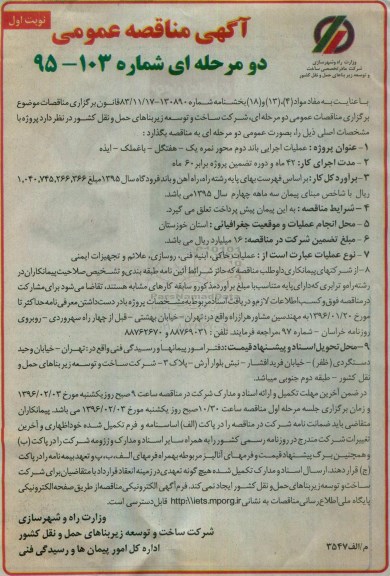 نوبت اول
آگهی مناقصه عمومی
دو مرحله ای شماره ۱۰۳- ۹۵
وزارت راه و شهرسازی
شرکت مادر تخصصی ساخت
و توسعه زیربناهای حمل و نقل کشور
با عنایت به مفاد مواد (۴)، (۱۳) و (۱۸) بخشنامه شماره ۱۳۰۸۹۰-۸۳/۱۱/۱۷ قانون برگزاری مناقصات موضوع
برگزاری مناقصات عمومی دو مرحله ای، شرکت ساخت و توسعه زیربناهای حمل و نقل کشور در نظر دارد پروژه با
مشخصات اصلی ذیل را، بصورت عمومی دو مرحله ای به مناقصه بگذارد:
۱- عنوان پروژه: عملیات اجرایی باند دوم محور نمره یک - هفتگل - باغملک - ایذه
۲- مدت اجرای کار: ۴۲ ماه و دوره تضمین پروژه برابر ۶۰ ماه
۳- برآورد کل کار: بر اساس فهرست بهای پایه رشته راه، راه آهن و باند فرودگاه سال ۱۳۹۵ مبلغ ۱,۰۴۰,۷۴۵,۲۶۶,۳۶۶
ریال با شاخص مبنای پیمان سه ماهه چهارم سال ۱۳۹۵ می باشد.
۴- شرایط مناقصه: به این پیمان پیش پرداخت تعلق می گیرد.
۵- محل انجام عملیات و موقعیت جغرافیائی: استان خوزستان
۶- مبلغ تضمین شرکت در مناقصه: ۱۶ میلیارد ریال می باشد.
۷- نوع عملیات عبارت است از: عملیات خاکی، ابنیه فنی، روسازی، علائم و تجهیزات ایمنی
۸- از شرکتهای پیمانکاری داوطلب مناقصه که حائز شرائط آئین نامه طبقه بندی و تشخیص صلاحیت پیمانکاران در
رشته راه و ترابری که دارای پایه متناسب با مبلغ برآورد مذکور و سابقه کارهای مشابه هستند، تقاضا می شود برای مشارکت
در مناقصه فوق و کسب اطلاعات لازم و دریافت اسناد مربوط به مشخصات پروژه با در دست داشتن معرفی نامه حداکثر تا
مورخ ۱۳۹۶/۰۱/۲۰ به مهندسین مشاور هراز راه واقع در: تهران - خیابان بهشتی - قبل از چهار راه سهروردی - روبروی
روزنامه خراسان - شماره ۹۷ مراجعه فرمایند. تلفن: ۸۸۷۶۹۰۳۱ و ۸۸۷۶۲۶۷۰
۹- محل تحویل اسناد و پیشنهاد قیمت: دفتر امور پیمانها و رسیدگی فنی واقع در: تهران - خیابان وحید
دستگردی (ظفر) - خیابان فرید افشار - نبش بلوار آرش - پلاک ۳ - شرکت ساخت و توسعه زیربناهای حمل و
نقل کشور - طبقه دوم جنوبی میباشد.
در ضمن آخرین مهلت تکمیل و ارائه اسناد و مدارک شرکت در مناقصه ساعت ۹ صبح روز یکشنبه مورخ ۱۳۹۶/۰۲/۰۳
و زمان برگزاری جلسه مرحله اول مناقصه ساعت ۱۰/۳۰ صبح روز یکشنبه مورخ ۱۳۹۶/۰۲/۰۳ می باشد. پیمانکاران
متقاضی باید ضمانت نامه شرکت در مناقصه را در پاکت (الف) اساسنامه و فرم تکمیل شده خوداظهاری و آخرین
تغییرات شرکت مندرج در روزنامه رسمی کشور را به همراه سایر اسناد و مدارک و رزومه شرکت را در پاکت (ب)
و همچنین برگ پیشنهاد قیمت و فرمهای آنالیز مربوطه بهمراه فرمهای الف، ب، پ و تعهد بیمه نامه را در پاکت
(ج) قرار دهند. ارسال اسناد و مدارک تکمیل شده هیچ گونه تعهدی در زمینه انعقاد قرارداد با متقاضیان برای شرکت
ساخت و توسعه زیربناهای حمل و نقل کشور ایجاد نمی کند. فرم آگهی الکترونیکی مناقصه از طریق صفحه الکترونیکی
پایگاه ملی اطلاع رسانی مناقصات به نشانی http:\\iets.mporg.ir قابل دسترسی است.
وزارت راه و شهرسازی
شرکت ساخت و توسعه زیربناهای حمل و نقل کشور
اداره کل امور پیمان ها و رسیدگی فنی
م/الف ۳۵۴۷